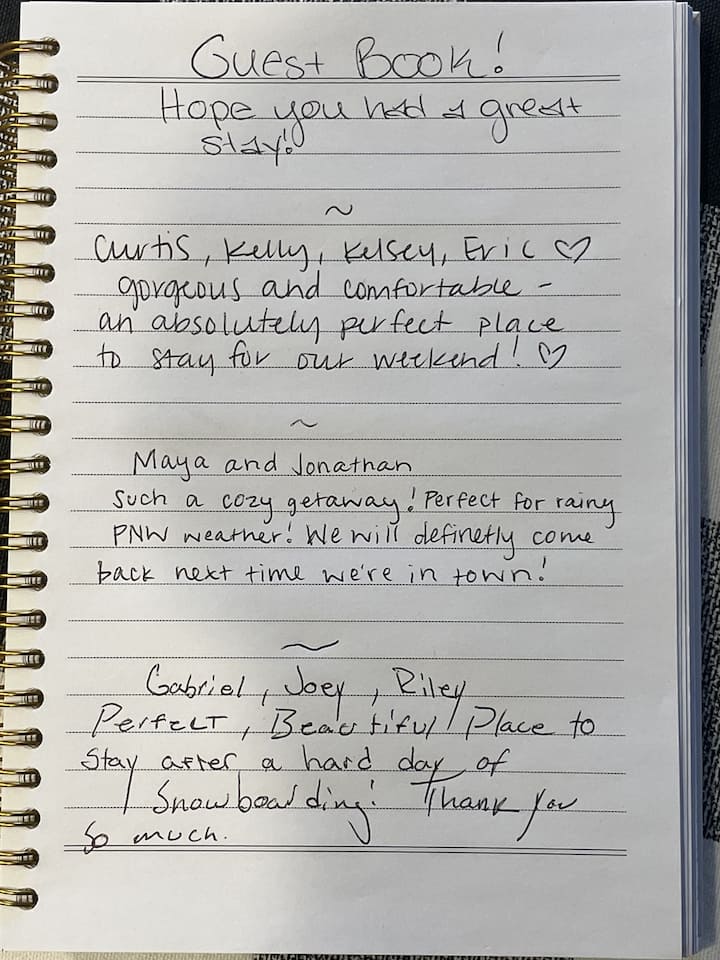 Guest Book!
Hope you had a great
stay!
~
Curtis, Kelly, Kelsey, Eric ♡
gorgeous and comfortable -
an absolutely perfect place
to stay for our weekend! ♡
~
Maya and Jonathan
Such a cozy getaway! Perfect for rainy
PNW weather! We will definetly come
back next time we're in town!
~
Gabriel, Joey, Riley
Perfect, Beautiful Place to
Stay after a hard day of
Snowboarding! Thank you
so much.